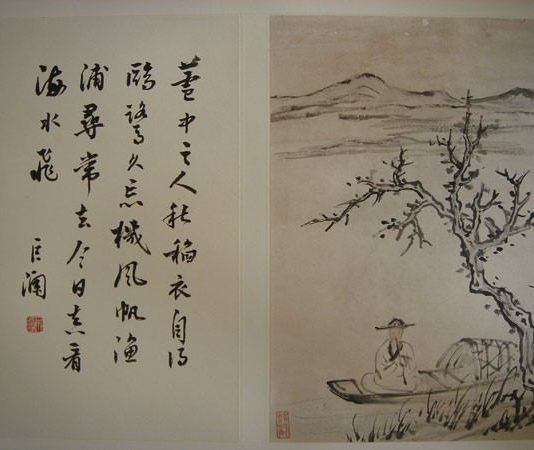 蘆中之人衣自得
鷗鷺久忘機風帆漁
浦尋常去今日真看
海水飛
巨瀾